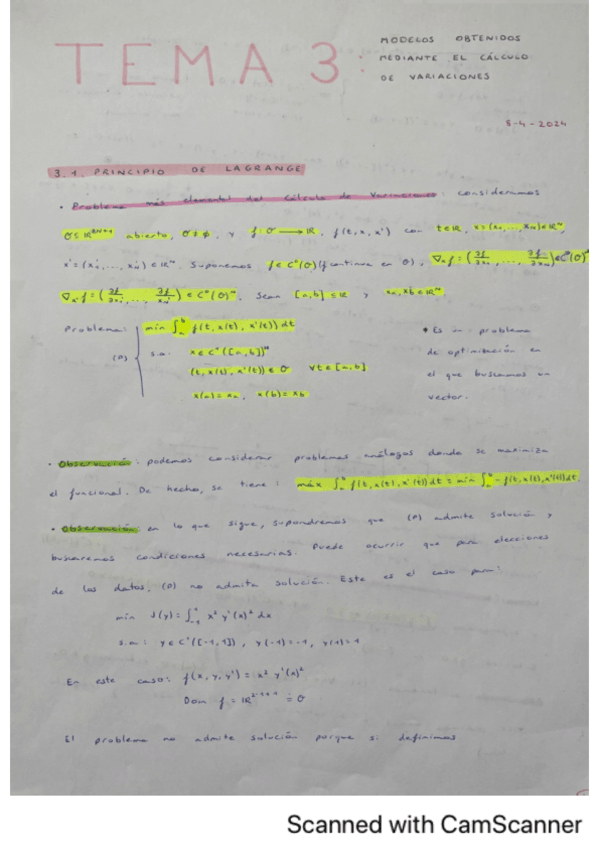 TEMA 3
MODELOS OBTENIDOS
MEDIANTE EL CÁLCULO
DE VARIACIONES
8-4-2024
3.1. PRINCIPIO DE LAGRANGE
• Problema más elemental del Cálculo de Variaciones: consideramos
O ⊆ ℝ²ⁿ⁺¹ abierto, O ≠ ∅, y f: O → ℝ, f(t, x, x') con t∈ℝ, x=(x₁,...,xₙ)∈ℝⁿ,
x'=(x'₁,...,x'ₙ)∈ℝⁿ. Suponemos f∈C⁰(O) (f continua en O), ∇ₓf = (∂f/∂x₁,..., ∂f/∂xₙ)∈C⁰(O)ⁿ
∇ₓ'f = (∂f/∂x'₁,..., ∂f/∂x'ₙ)∈C⁰(O)ⁿ. Sean [a,b]⊆ℝ y xₐ, x_b∈ℝⁿ.
Problema: min ∫ₐᵇ f(t, x(t), x'(t)) dt
(P) s.a. x∈C¹([a,b])ⁿ
(t, x(t), x'(t))∈O ∀t∈[a,b]
x(a)=xₐ, x(b)=x_b
• Es un problema
de optimización en
el que buscamos un
vector.
• Observación: podemos considerar problemas análogos donde se maximiza
el funcional. De hecho, se tiene: máx ∫ₐᵇ f(t, x(t), x'(t)) dt = min ∫ₐᵇ -f(t, x(t), x'(t)) dt.
• Observación: en lo que sigue, supondremos que (P) admite solución y
buscaremos condiciones necesarias. Puede ocurrir que para elecciones
de los datos, (P) no admita solución. Este es el caso para:
min J(y) = ∫₋₁¹ x² y'(x)² dx
s.a.: y∈C¹([-1,1]), y(-1)=-1, y(1)=1
En este caso: f(x, y, y') = x² y'(x)²
Dom f = ℝ²·¹⁺¹ = O
El problema no admite solución porque si definimos
Scanned with CamScanner